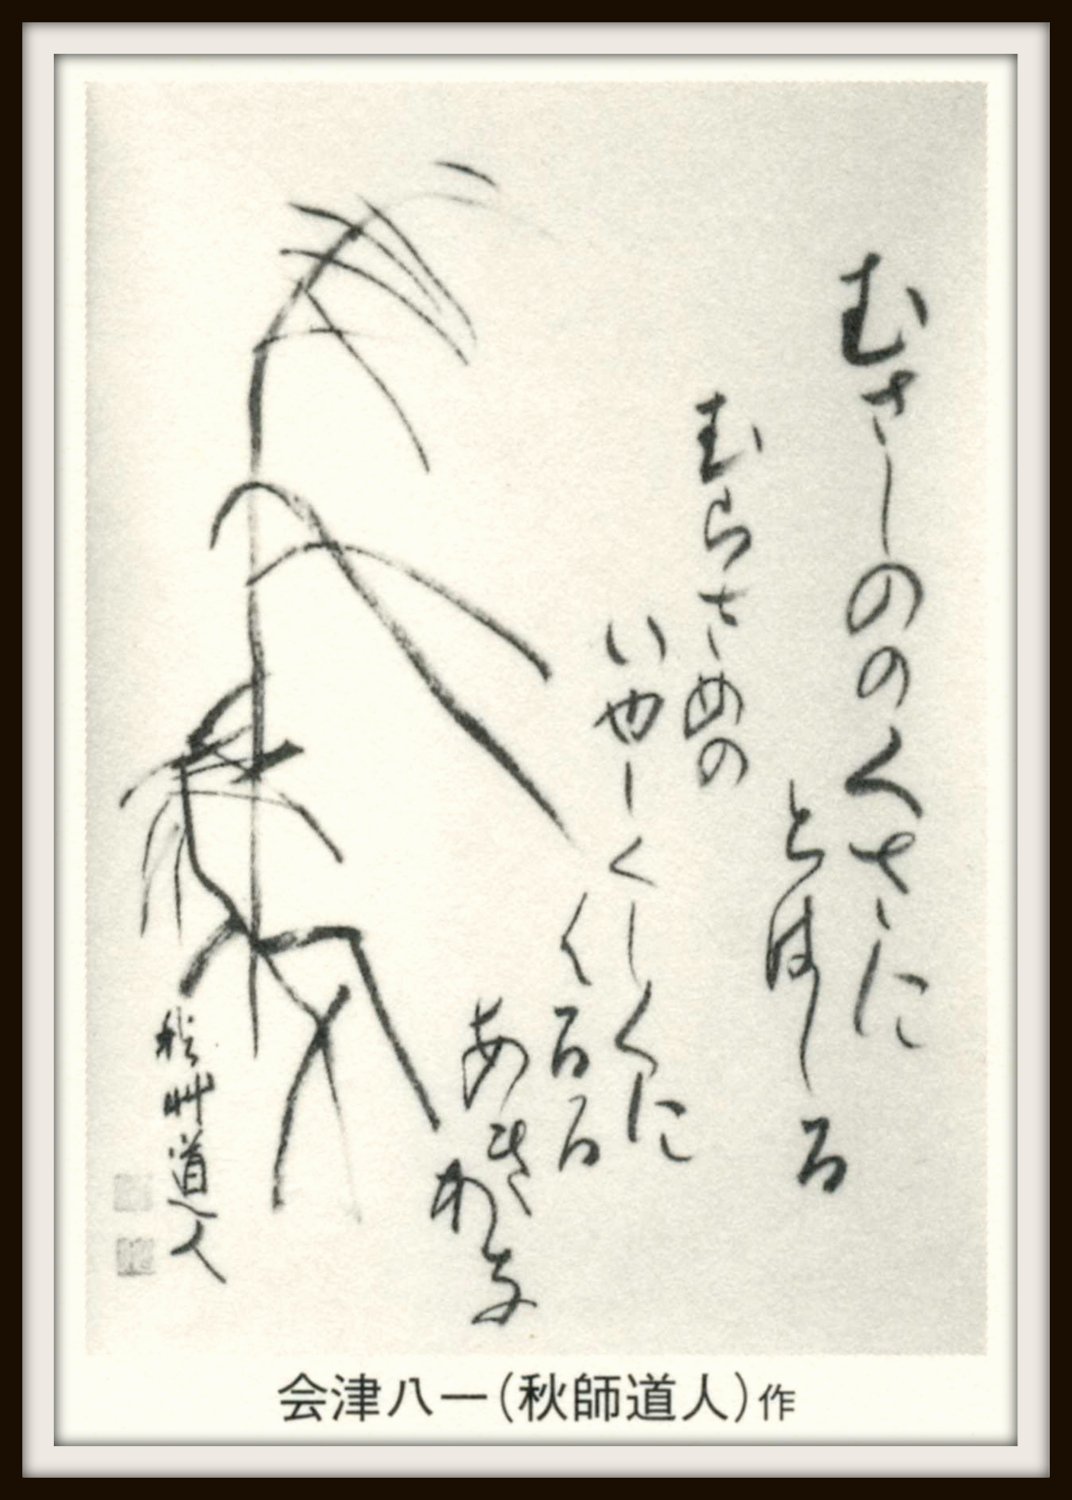 むさしののくさに
とはしる
むらさめの
いやしくしくに
くるる
あきかな
秋艸道人
会津八一(秋師道人)作